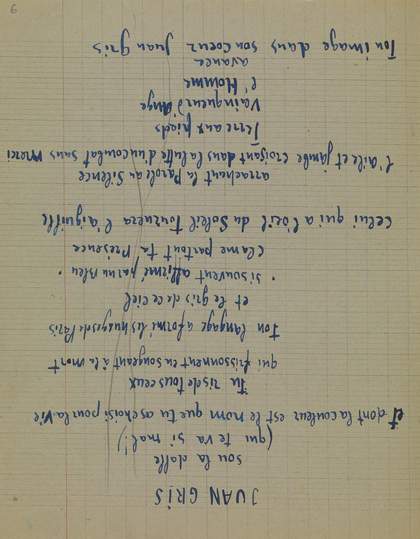 JUAN GRIS
sou la dalle
(qui te va si mal!)
et dont la couleur est le nom que tu as choisi pour la vie
Tu ris de tous ceux
qui frissonnent en songeant à la mort
Ton langage a formé les nuages de Paris
et le gris de ce ciel
si souvent affirmé par un bleu.
clame partout ta Présence
Celui qui a l'œil du Soleil tournera l'aiguille
arrachant la Parole au Silence
l'aile et jambe croisant dans la lutte d'un combat sans merci
Terre aux pieds
Vainqueur d'Ange
l'Homme
avance
Ton image dans son coeur Juan Gris